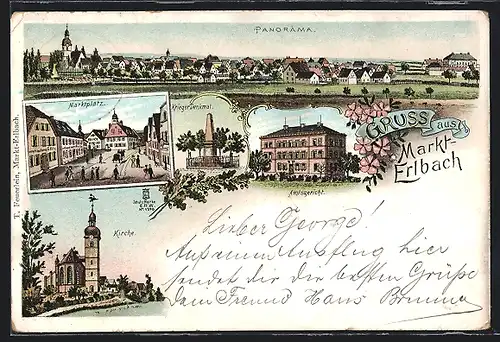 PANORAMA.
Marktplatz.
Kriegerdenkmal.
GRUSS aus
Markt-
Erlbach
Amtsgericht.
Kirche.
T. Feuerstein, Markt-Erlbach.
Lieber George!
Auf einem Ausflug hier
sendet dir die besten Grüße
Dein Freund Hans